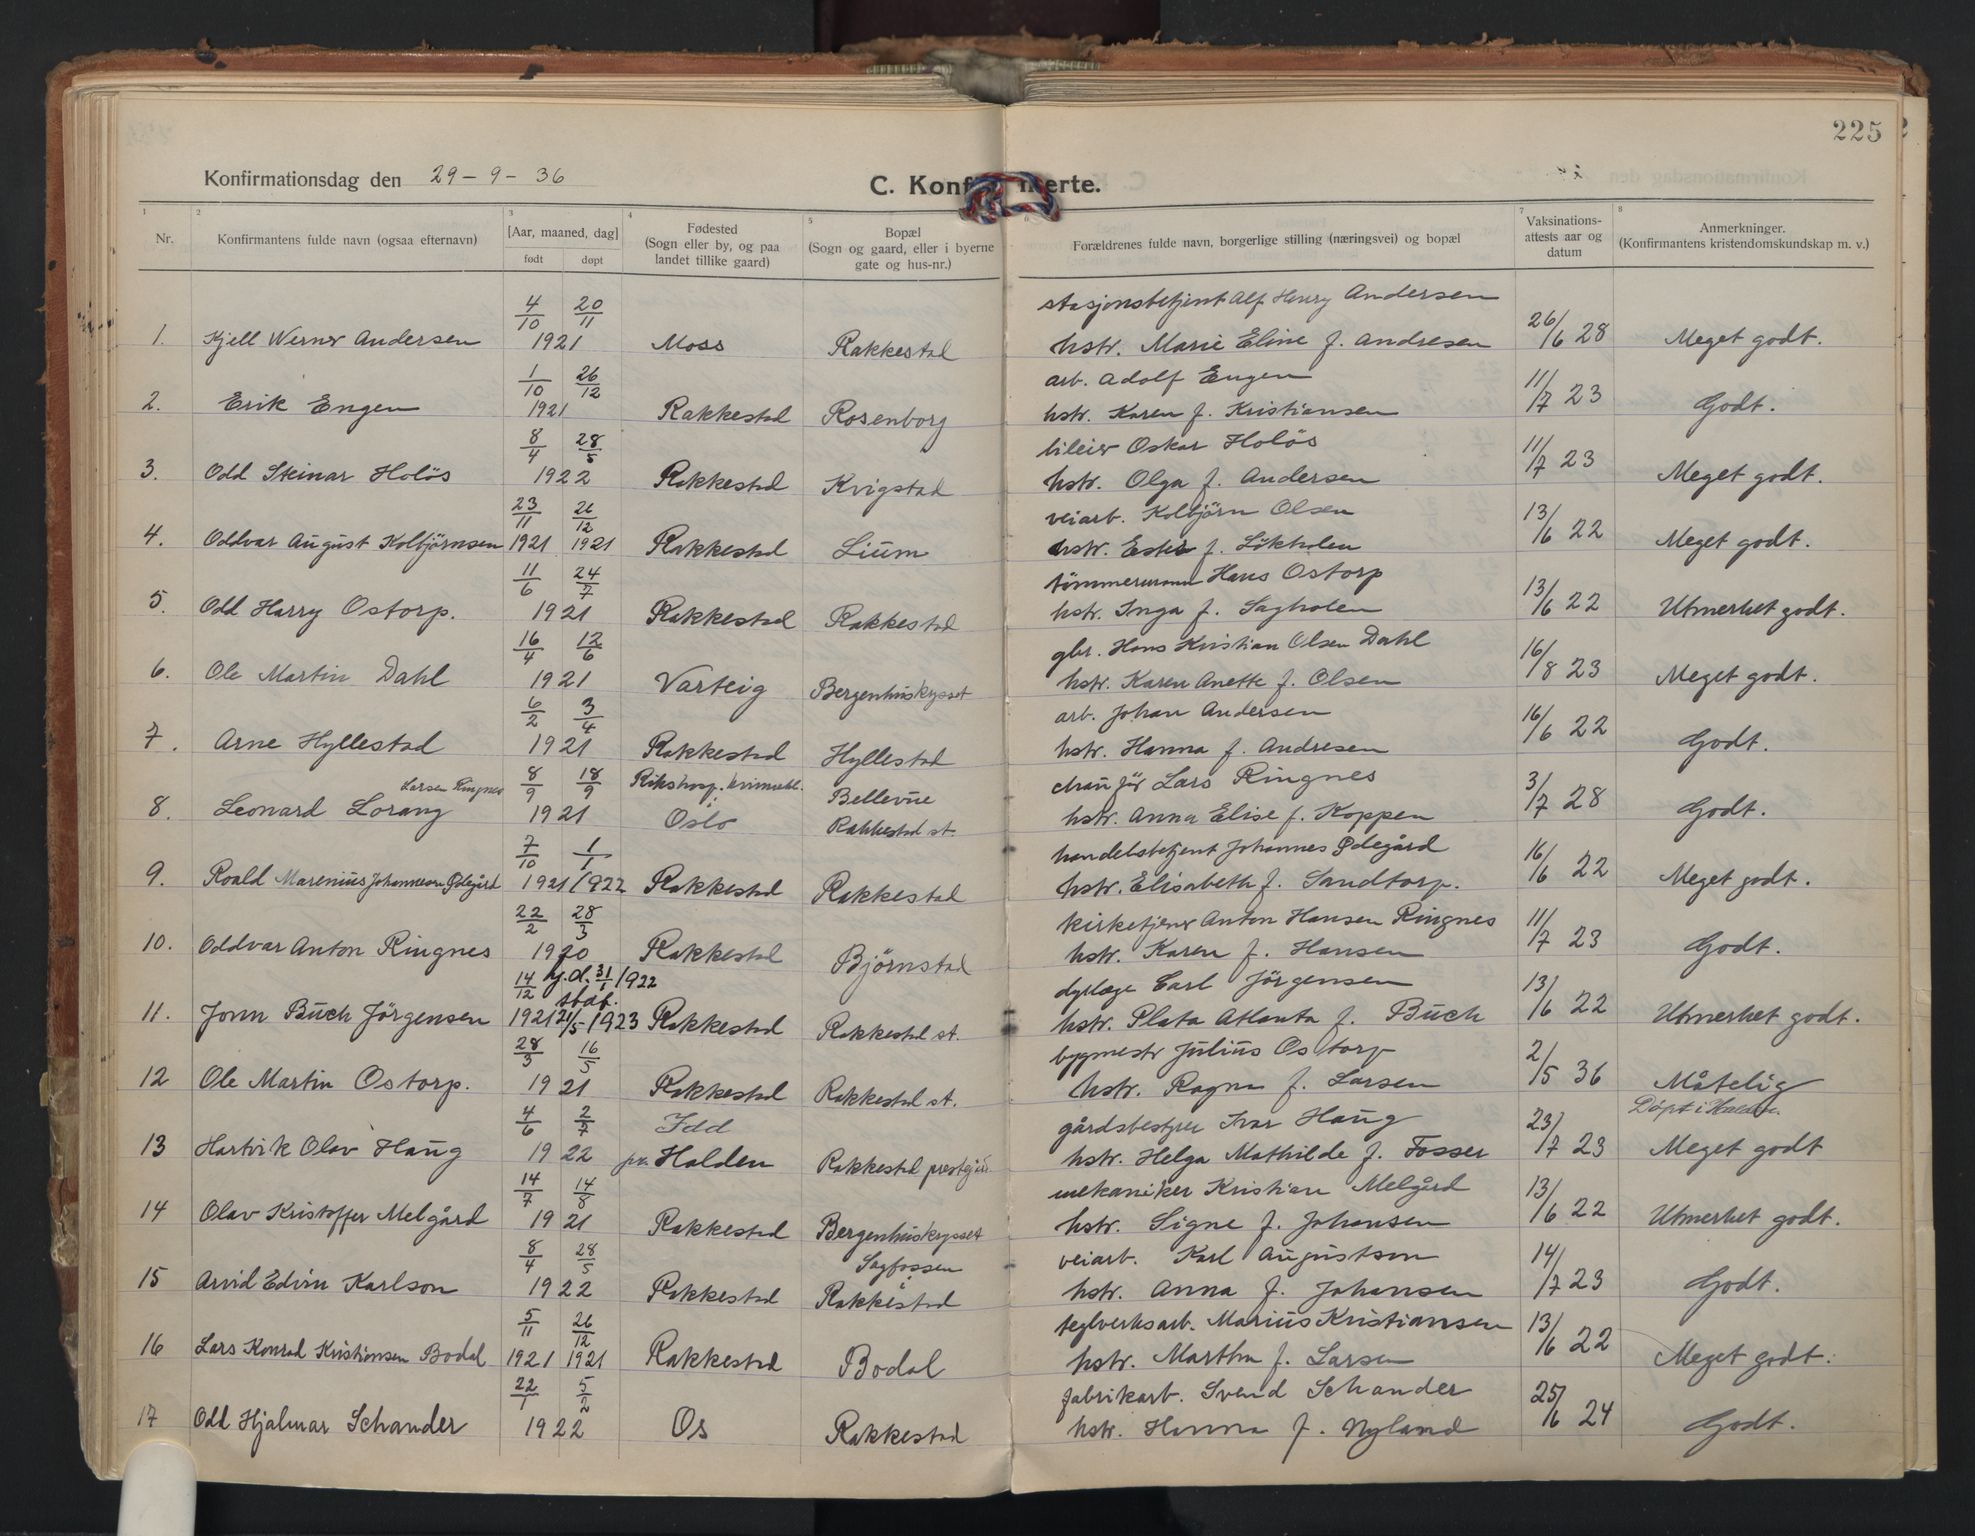 225
Konfirmationsdag den 29-9-36
C. Konf merte.
1 2 3 4 5 7 8
Nr. Konfirmantens fulde navn (ogsaa efternavn) [Aar, maaned, dag] født døpt Fødested (Sogn eller by, og paa landet tillike gaard) Bopæl (Sogn og gaard, eller i byerne gate og hus-nr.) Forældrenes fulde navn, borgerlige stilling (næringsvei) og bopæl Vaksinations-attests aar og datum Anmerkninger. (Konfirmantens kristendomskundskap m. v.)
4/10 20/11 stasjonsbetjent Alf Henry Andersen
1. Kjell Werner Andersen 1921 Moss Rakkestad hstr. Marie Eline f. Andresen 26/6 28 Meget godt.
1/10 26/12 arb. Adolf Engen
2. Erik Engen 1921 Rakkestad Rosenborg hstr. Karen f. Kristiansen 11/7 23 Godt.
8/4 28/5 bileier Oskar Holös
3. Odd Steinar Holös 1922 Rakkestad Kvigstad hstr. Olga f. Andersen 11/7 23 Meget godt.
23/11 26/12 veiarb. Kolbjörn Olsen
4. Oddvar August Kolbjörnsen 1921 1921 Rakkestad Lium hstr. Ester f. Lökholen 13/6 22 Meget godt.
11/6 24/7 tömmermann Hans Ostorp
5. Odd Harry Ostorp. 1921 Rakkestad Rakkestad hstr. Inga f. Sagholen 13/6 22 Utmerket godt.
16/4 12/6 gbr. Hans Kristian Olsen Dahl
6. Ole Martin Dahl 1921 Varteig Bergenhuskrysset hstr. Karen Anette f. Olsen 16/8 23 Meget godt.
6/2 3/4 arb. Johan Andersen
7. Arne Hyllestad 1921 Rakkestad Hyllestad hstr. Hanna f. Andresen 16/6 22 Godt.
Larsen Ringnes 8/9 18/9 Rikshosp. kvinnekl. Bellevue chauför Lars Ringnes
8. Leonard Lorang 1921 i Oslo Rakkestad st. hstr. Anna Elise f. Koppen 3/7 28 Godt.
7/10 1/1 handelsbetjent Johannes Ödegård
9. Roald Marenius Johannesen Ödegård 1921 1922 Rakkestad Rakkestad hstr. Elisabeth f. Sandtorp. 16/6 22 Meget godt.
22/2 28/3 kirketjener Anton Hansen Ringnes
10. Oddvar Anton Ringnes 1920 Rakkestad Björnstad hstr. Karen f. Hansen 11/7 23 Godt.
14/12 hj.d. 31/1 1922 stadf. dyrlæge Carl Jörgensen
11. Jonn Buch Jörgensen 1921 21/5 1923 Rakkestad Rakkestad st. hstr. Plata Atlanta f. Buch 13/6 22 Utmerket godt.
28/3 16/5 bygmestr Julius Ostorp
12 Ole Martin Ostorp. 1921 Rakkestad Rakkestad st. hstr. Ragna f. Larsen 2/5 36 Måtelig
4/6 2/7 Idd gårdsbestyrer Ivar Haug Döpt i Halden.
13 Hartvik Olav Haug 1922 pr. Halden Rakkestad prestgård hstr. Helga Mathilde f. Fosser 23/7 23 Meget godt
14/7 14/8 mekaniker Kristian Melgård
14 Olav Kristoffer Melgård 1921 Rakkestad Bergenhuskrysset hstr. Signe f. Johansen 13/6 22 Utmerket godt.
8/4 28/5 Sagfossen veiarb. Karl Augustson
15 Arvid Edvin Karlson 1922 Rakkestad i Rakkestad hstr. Anna f. Johansen 14/7 23 Godt.
5/11 26/12 teglverksarb. Marius Kristiansen
16 Lars Konrad Kristiansen Bodal 1921 1921 Rakkestad Bodal hstr. Martha f. Larsen 13/6 22 Meget godt.
22/1 5/2 fabrikarb. Svend Schander
17 Odd Hjalmar Schander 1922 Os Rakkestad hstr. Hanna f. Nyland 25/6 24 Godt.